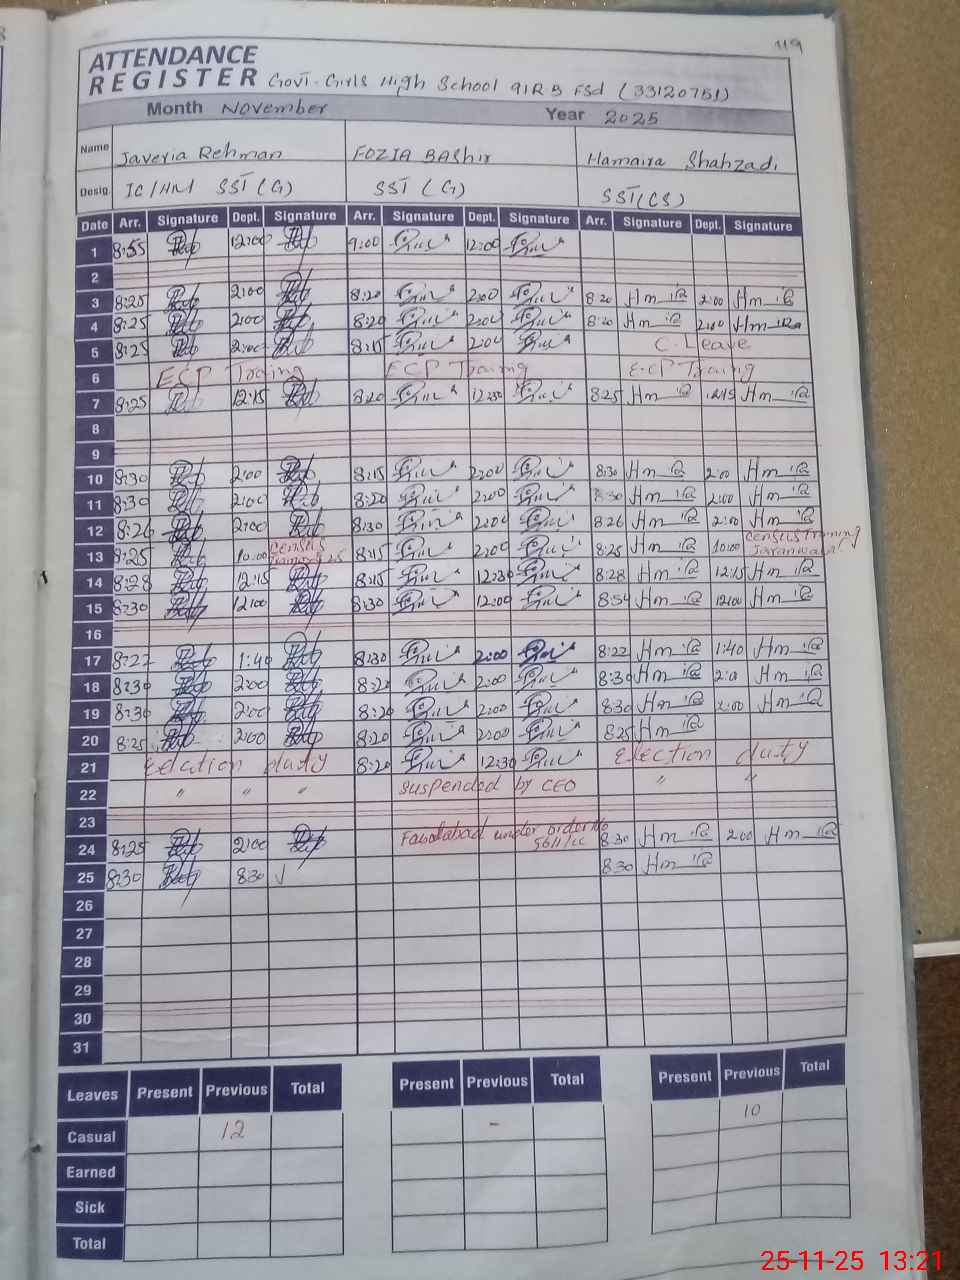 119
ATTENDANCE
REGISTER Govt. Girls High School 91 RB Fsd (33120751)
Month November Year 2025
Name Javeria Rehman FOZIA BASHIR Hamaira Shahzadi
Desig. IC/HM SST (G) SST (G) SST(CS)
Date Arr. Signature Dept. Signature Arr. Signature Dept. Signature Arr. Signature Dept. Signature
1 8:55 12:00 9:00 12:00
2
3 8:25 2:00 8:20 2:00 8 20 Hm 2:00 Hm
4 8:25 2:00 8:20 2:00 8:20 Hm 2:00 Hm
5 8:25 2:00 8:15 2:00 C. Leave
6 ECP Traing ECP Traing E.CP Traing
7 8:25 12:15 8:20 12:30 8:25 Hm 12:15 Hm
8
9
10 8:30 2:00 8:15 2:00 8:30 Hm 2:00 Hm
11 8:30 2:00 8:20 2:00 8:30 Hm 2:00 Hm
12 8:26 2:00 8:30 2:00 8:26 Hm 2:00 Hm
13 8:25 10:00 Census 8:15 2:00 8:25 Hm 10:00 Census Training Jaranwala
14 8:28 12:15 8:15 12:30 8:28 Hm 12:15 Hm
15 8:30 12:00 8:30 12:00 8:54 Hm 12:00 Hm
16
17 8:22 1:40 8:30 2:00 8:22 Hm 1:40 Hm
18 8:30 2:00 8:20 2:00 8:30 Hm 2:0 Hm
19 8:30 2:00 8:20 2:00 8:30 Hm 2:00 Hm
20 8:25 2:00 8:20 2:00 8:25 Hm
21 Election duty 8:20 12:30 Election duty
22 " " " Suspended by CEO " "
23
24 8:25 2:00 Faisalabad under order No 5611/CC 8 30 Hm 2:00 Hm
25 8:30 8:30 ✓ 8:30 Hm
26
27
28
29
30
31
Leaves Present Previous Total Present Previous Total Present Previous Total
Casual 12 - 10
Earned
Sick
Total
25-11-25 13:21